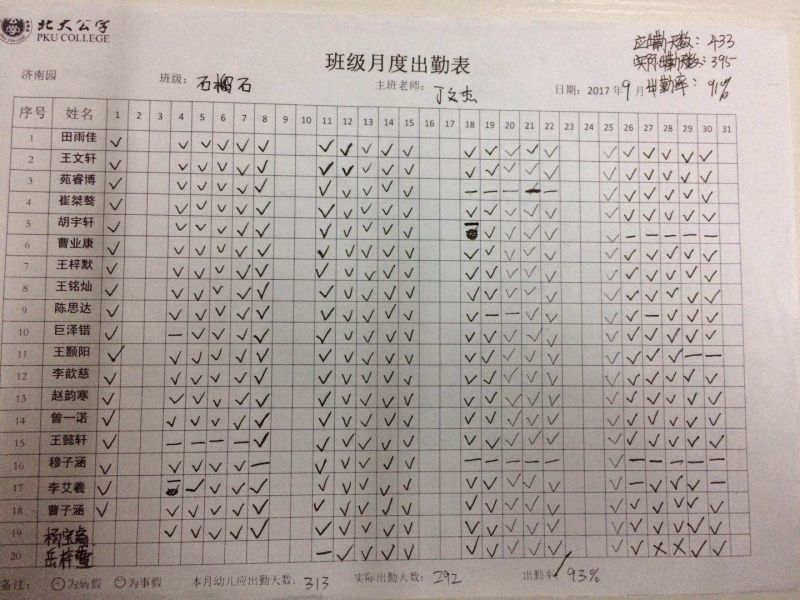 北大公学
PKU COLLEGE
班级月度出勤表
应出勤天数：433
实际出勤天数：395
出勤率：91%
济南园 班级：石榴石 主班老师：丁文杰 日期：2017年9月
序号 姓名 1 2 3 4 5 6 7 8 9 10 11 12 13 14 15 16 17 18 19 20 21 22 23 24 25 26 27 28 29 30 31
1 田雨佳 ✓ ✓ ✓ ✓ ✓ ✓ ✓ ✓ ✓ ✓ ✓ ✓ ✓ ✓ ✓ ✓ ✓ ✓ ✓ ✓ ✓
2 王文轩 ✓ ✓ ✓ ✓ ✓ ✓ ✓ ✓ ✓ ✓ ✓ ✓ ✓ ✓ ✓ ✓ ✓ ✓ ✓ ✓ ✓
3 苑睿博
4 崔桀骜
5 胡宇轩
6 曹业康
7 王梓默
8 王铭灿
9 陈思达
10 巨泽锴
11 王颢阳
12 李歆慈
13 赵韵寒
14 曾一诺
15 王懿轩
16 穆子涵
17 李艾羲
18 曹子涵
19 杨宝
20 岳梓萱
备注： 为病假 为事假 本月幼儿应出勤天数：313 实际出勤天数：292 出勤率 93%